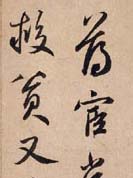 薄宦
救貧又